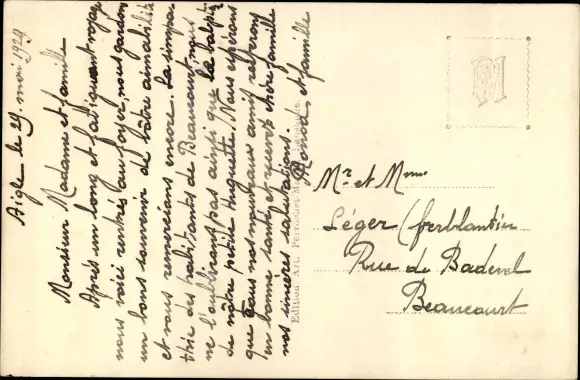 Aigle le 29. mai 1929
Monsieur Madame et famille
Après un long et fatiguant voyage
nous voici rentrés au foyer, nous gardons
un bons souvenir de vôtre aimabilité
et vous remercions encore. La simpa-
thie des habitants de Beaucourt, nous
ne l'oublirons pas ainsi que la
de nôtre petite huguette. Nous espérons
que tous nos nouveaux amis, resterons
en bonne santé et recevez chère famille
nos sincères salutations.
Monod et famille
Edition Art. Perrochet
Mr. et Mme
Léger (ferblantier
Rue de Badevel
Beaucourt